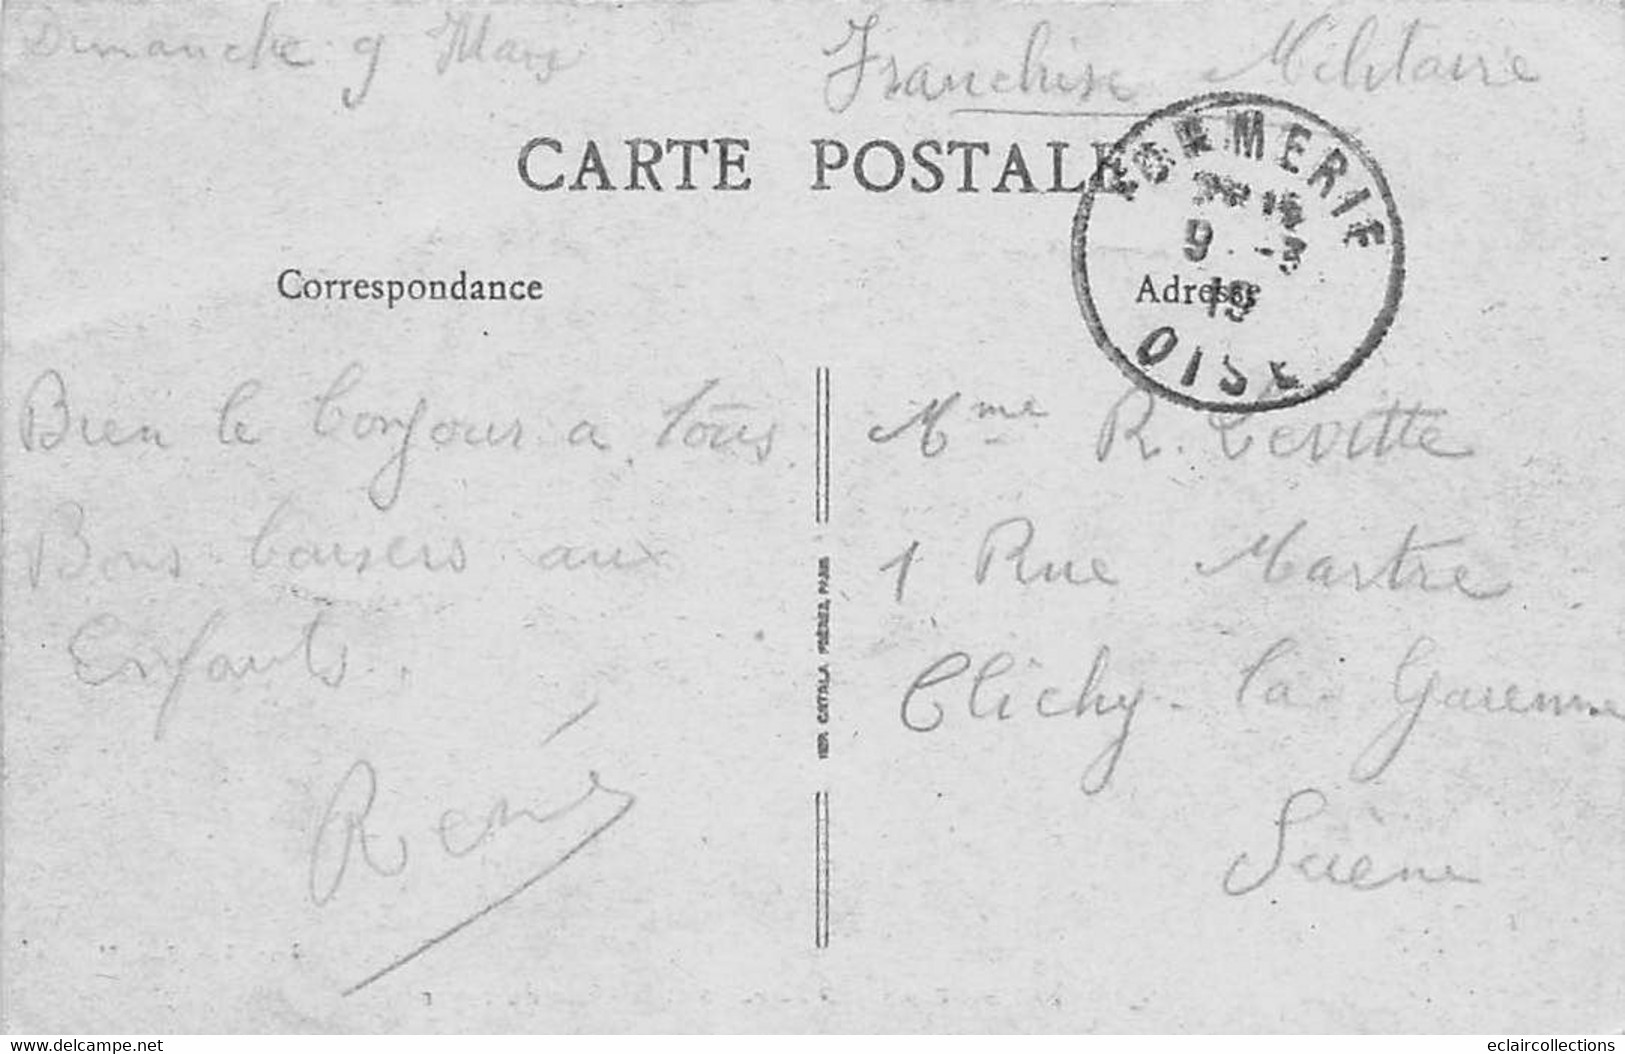 Dimanche 9 Mars
Franchise Militaire
CARTE POSTALE
FORMERIE
9 -3
19
OISE
Correspondance
Adresse
Bien le bonjour a tous.
Bons baisers aux
Enfants.
René
Mme R. Levitte
1 Rue Martre
Clichy-la-Garenne
IMP. CATALA FRÈRES, PARIS
delcampe.net
eclaircollections